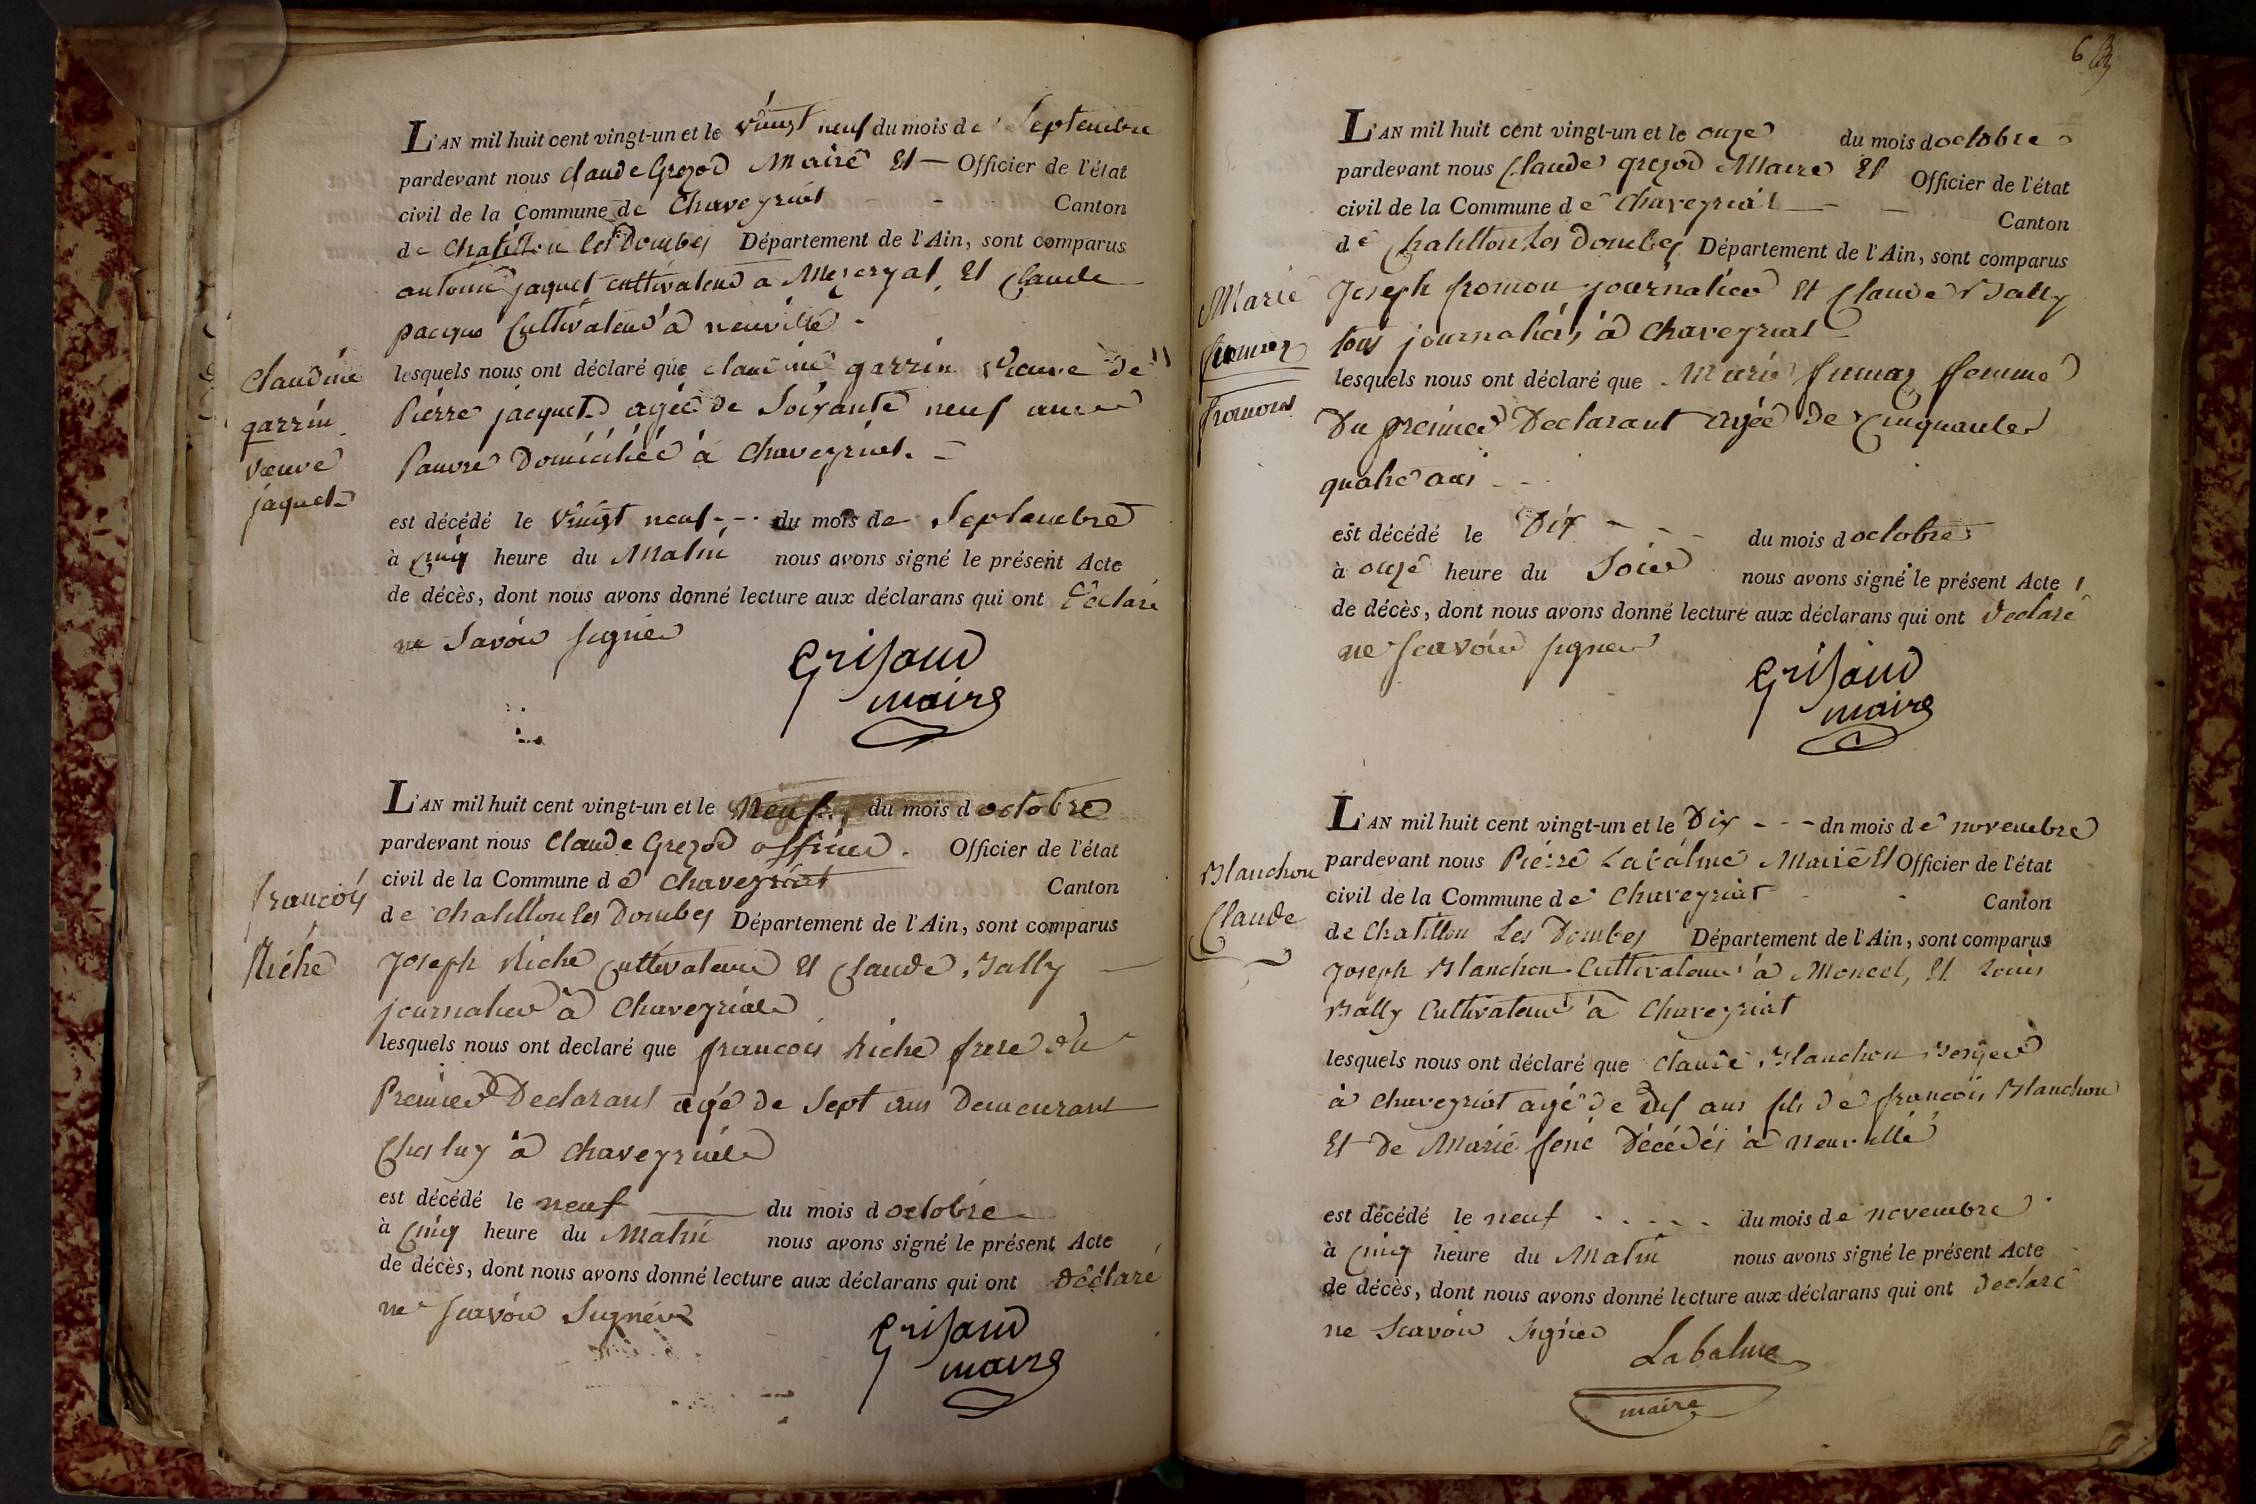 L'AN mil huit cent vingt-un et le vingt neuf du mois de Septembre
pardevant nous Claude Grezod Maire Et — Officier de l'état
civil de la Commune de Chaveyriat - Canton
de Chatillon les Dombes Département de l'Ain, sont comparus
antoine jaquet cultivateur a Mezeryat, Et Claude
pacque Cultivateur à neuville -
Claudine
garrin
veuve
jaquet
lesquels nous ont déclaré que claudine garrin Veuve de
Pierre jacquet agée de Soixante neuf ans
Pauvre Domiciliée à Chaveyriat. -
est décédé le vingt neuf - - du mois de Septembre
à Cinq heure du Matin nous avons signé le présent Acte
de décès, dont nous avons donné lecture aux déclarans qui ont déclaré
ne Savoir signer
Grisaud
maire
L'AN mil huit cent vingt-un et le Neuf du mois d octobre
pardevant nous Claude Grezod officier . Officier de l'état
civil de la Commune de Chaveyriat Canton
de Chatillon les Dombes Département de l'Ain, sont comparus
françois
Riche
Joseph Riche Cultivateur Et Claude Bally —
journalier à Chaveyriat
lesquels nous ont declaré que françois Riche frere du
Premier Declarant agé de Sept ans Demeurant
Ches luy à Chaveyriat
est décédé le neuf — du mois d octobre
à Cinq heure du Matin nous avons signé le présent Acte
de décès, dont nous avons donné lecture aux déclarans qui ont déclaré
ne scavoir Signer
Grisaud
maire
6
L'AN mil huit cent vingt-un et le onze du mois d octobre
pardevant nous Claude grezod Maire Et Officier de l'état
civil de la Commune de Chaveyriat — — Canton
de Chatillon les Dombes Département de l'Ain, sont comparus
Marie
fromon
Joseph fromon journalier Et Claude Bally
tous journaliers à Chaveyriat
lesquels nous ont déclaré que Marie femme
Du premier Declarant agée de Cinquante
quatre ans - -
est décédé le Dix - - - du mois d octobre
à onze heure du Soir nous avons signé le présent Acte
de décès, dont nous avons donné lecture aux déclarans qui ont declaré
ne scavoir signer
Grisaud
maire
L'AN mil huit cent vingt-un et le Dix - - - dn mois de novembre
pardevant nous Pierre Labalme Maire Et Officier de l'état
civil de la Commune de Chaveyriat Canton
de Chatillon Les Dombes Département de l'Ain, sont comparus
Blanchon
Claude
Joseph Blanchon Cultivateur à Moncel, Et Louis
Bally Cultivateur à Chaveyriat
lesquels nous ont déclaré que Claude Blanchon Berger
à Chaveyriat agé de ans fils de françois Blanchon
Et De Marie Décédés à neuville
est décédé le neuf - - - - - du mois de novembre
à Cinq heure du Matin nous avons signé le présent Acte
de décès, dont nous avons donné lecture aux déclarans qui ont declaré
ne Scavoir Signer
Labalme
maire